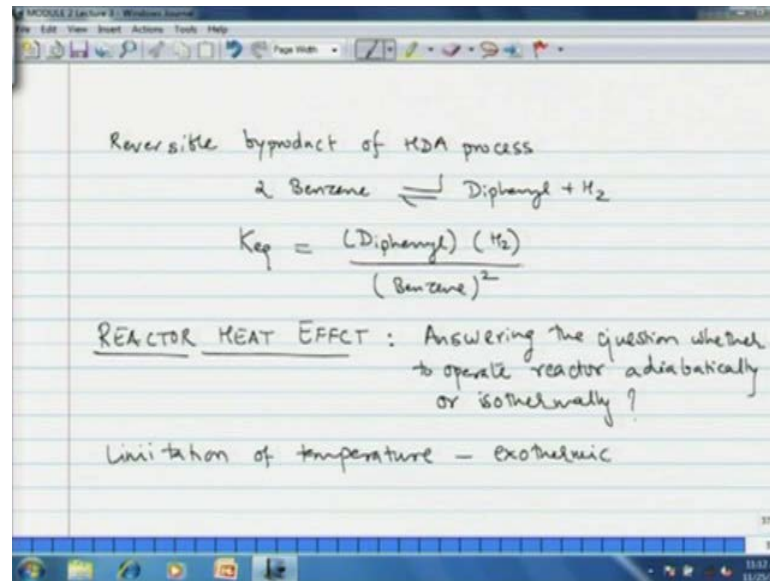 MODULE 2 Lecture 3 - Windows Journal
File Edit View Insert Actions Tools Help
Page Width
Reversible byproduct of HDA process
2 Benzene ⇌ Diphenyl + H2
Keq = (Diphenyl) (H2)
(Benzene)^2
REACTOR HEAT EFFCT : Answering the question whether
to operate reactor adiabatically
or isothermally ?
Limitation of temperature - exothermic
11:12